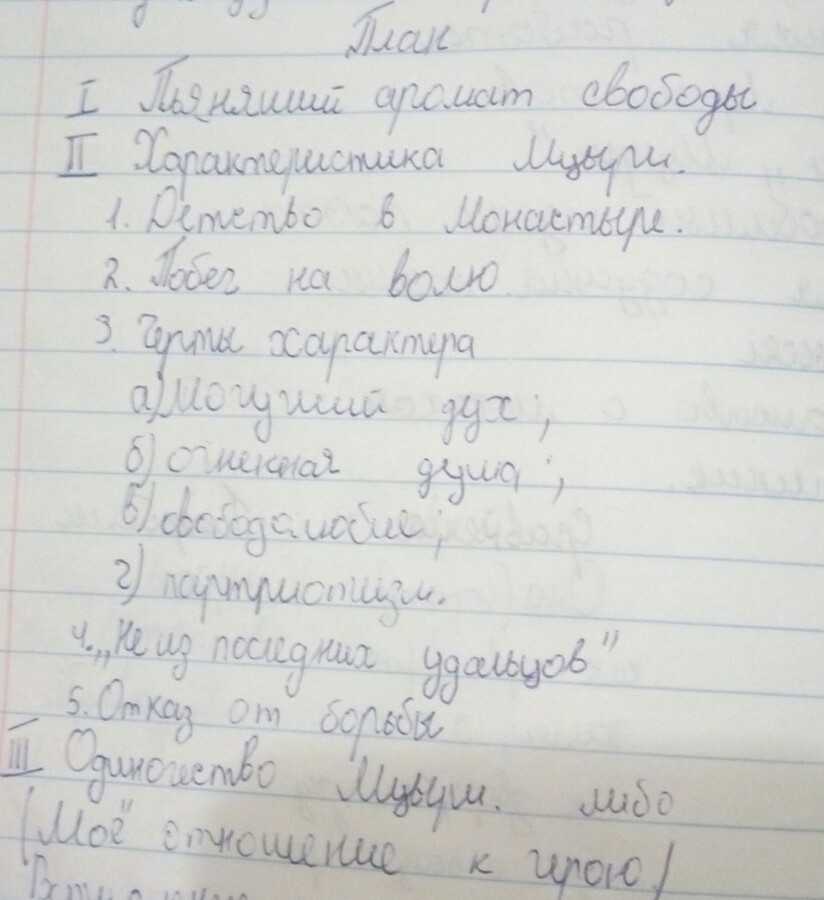 План
I Пьянящий аромат свободы
II Характеристика Мцыри.
1. Детство в монастыре.
2. Побег на волю
3. Черты характера
а) могучий дух;
б) огненная душа;
в) свободалюбие;
г) партриотизм.
4. „Не из последних удальцов"
5. Отказ от борьбы
III Одиночество Мцыри. либо
(Моё отношение к герою)